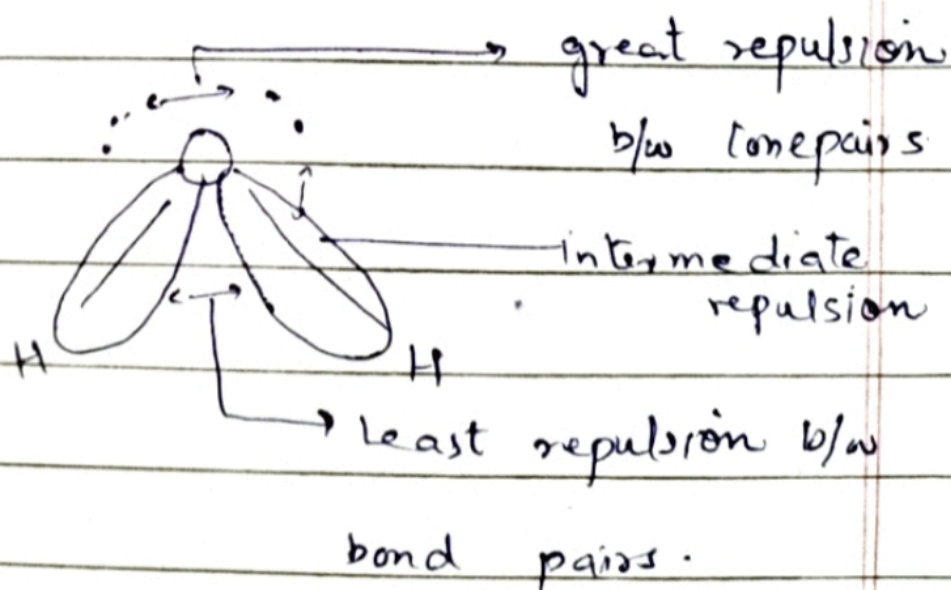 great repulsion
b/w lonepairs
intermediate
repulsion
H
H
Least repulsion b/w
bond pairs.